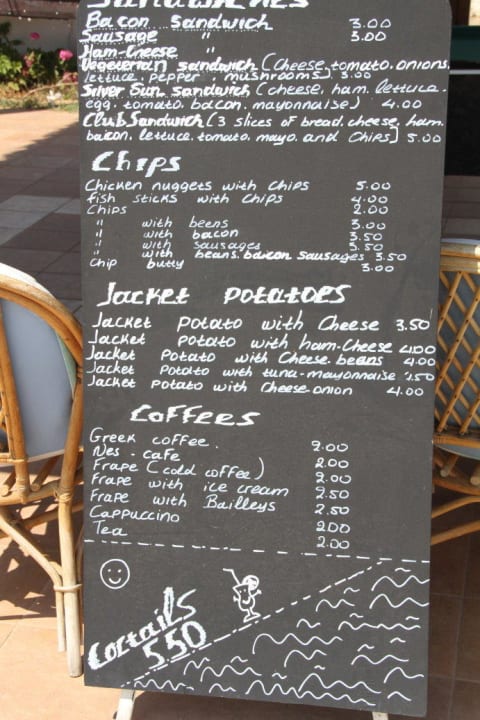 Sandwiches
Bacon Sandwich 3.00
Sausage " 3.00
Ham-Cheese "
Vegeterian sandwich (Cheese.tomato.onions.
lettuce.pepper.mushrooms) 3.00
Silver Sun sandwich (cheese, ham. lettuce.
egg. tomato. bacon. mayonnaise) 4.00
Club Sandwich (3 slices of bread.cheese, ham.
bacon.lettuce.tomato.mayo.and Chips) 5.00
Chips
Chicken nuggets with chips 5.00
fish sticks with chips 4.00
Chips 2.00
" with beens 3.00
" with bacon 3.50
" with sausages 3.50
" with beans.bacon sausages 3.50
Chip butty 3.00
Jacket potatoes
Jacket Potato with Cheese 3.50
Jacket potato with ham-Cheese 4.00
Jacket Potato with Cheese.beans 4.00
Jacket Potato with tuna-mayonnaise
Jacket potato with Cheese-onion 4.00
Coffees
Greek coffee. 2.00
Nes-cafe 2.00
Frape (cold coffee) 2.00
Frape with ice cream 2.50
Frape with Bailleys 2.50
Cappuccino 2.00
Tea 2.00
Coctails
5.50